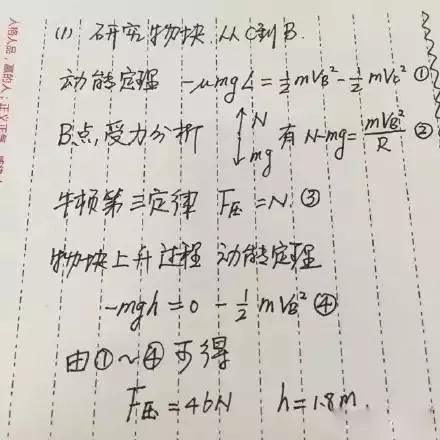 (1) 研究物块从C到B.
动能定理 -μmgL=½mV_B²-½mV_C² ①
B点,受力分析 ↑N ↓mg 有 N-mg=mV_B²/R ②
牛顿第三定律 F压=N ③
物块上升过程 动能定理
-mgh=0-½mV_B² ④
由①~④可得
F压=46N h=1.8m.